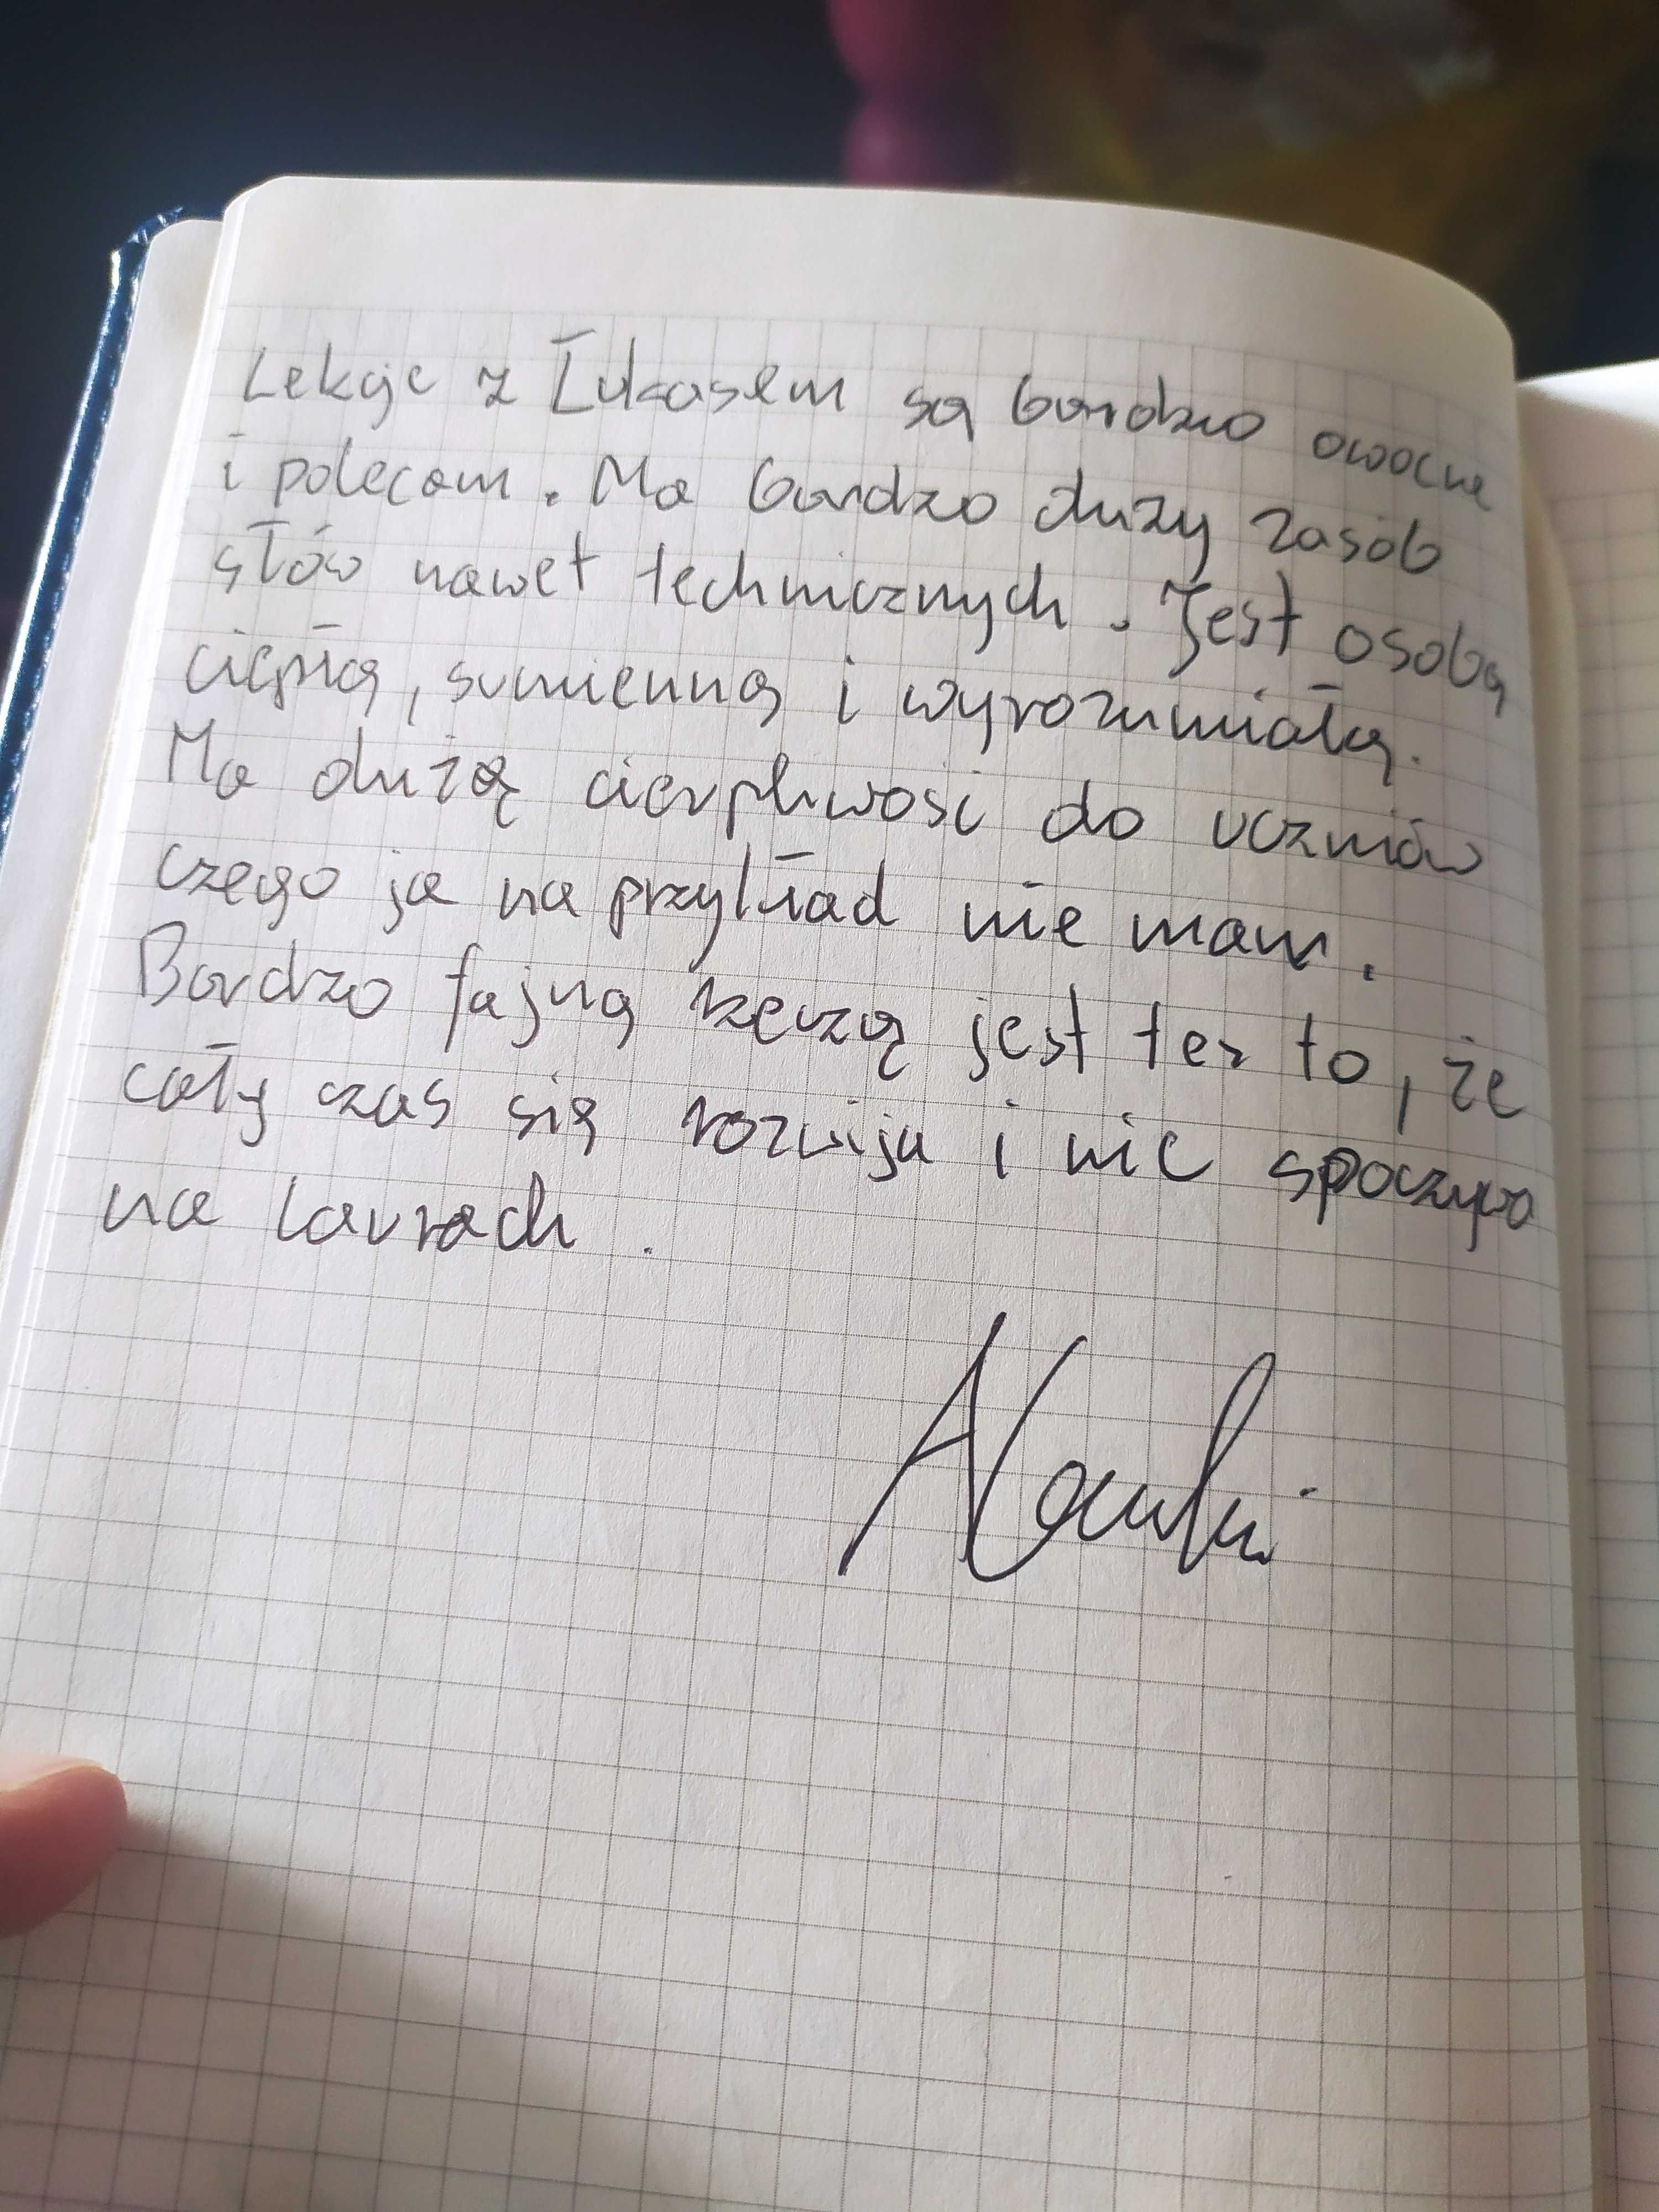 Lekcje z Łukasem są bardzo owocne
i polecam. Ma bardzo duży zasób
słów nawet technicznych. Jest osobą
ciepłą, sumienną i wyrozumiałą.
Ma dużą cierpliwość do uczniów
czego ja na przykład nie mam.
Bardzo fajną rzeczą jest tez to, że
cały czas się rozwija i nie spoczywa
na laurach.